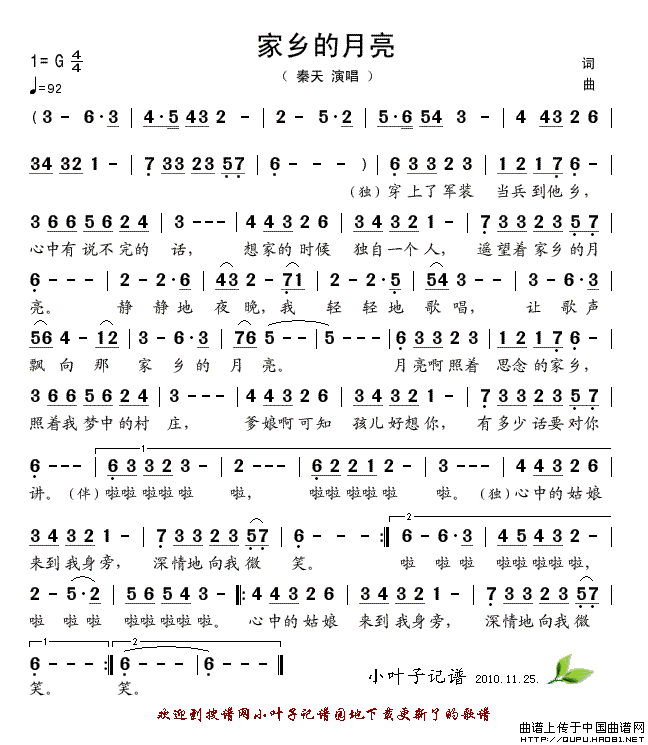 家乡的月亮
1= G 4/4
( 秦天 演唱 )
词
♩=92
曲
( 3 - 6 · 3 | 4 · 5 4 3 2 - | 2 - 5 · 2 | 5 · 6 5 4 3 - | 4 4 3 2 6
3 4 3 2 1 - | 7 3 3 2 3 5 7 | 6 - - - ) | 6 3 3 2 3 | 1 2 1 7 6 - |
(独) 穿上了军装 当兵到他乡,
3 6 6 5 6 2 4 | 3 - - - | 4 4 3 2 6 | 3 4 3 2 1 - | 7 3 3 2 3 5 7 |
心中有说不完的 话, 想家的时候 独自一个人, 遥望着家乡的月
6 - - - | 2 - 2 · 6 | 4 3 2 - 7 1 | 2 - 2 · 5 | 5 4 3 - | 3 - 6 · 3 |
亮。 静 静地 夜 晚,我 轻 轻地 歌 唱, 让 歌声
5 6 4 - 1 2 | 3 - 6 · 3 | 7 6 5 - | 5 - - - | 6 3 3 2 3 | 1 2 1 7 6 - |
飘向 那 家 乡的 月 亮。 月亮啊照着 思念的家乡,
3 6 6 5 6 2 4 | 3 - - - | 4 4 3 2 6 | 3 4 3 2 1 - | 7 3 3 2 3 5 7 |
照着我梦中的村 庄, 爹娘啊可知 孩儿好想你, 有多少话要对你
1
6 - - - | 6 3 3 2 3 | 2 - - - | 6 2 2 1 2 | 3 - - - | 4 4 3 2 6
讲。(伴) 啦啦 啦啦啦 啦, 啦啦 啦啦啦 啦。(独) 心中的姑娘
2
3 4 3 2 1 - | 7 3 3 2 3 5 7 | 6 - - - :| 6 - 6 · 3 | 4 5 4 3 2 - |
来到我身旁, 深情地向我微 笑。 啦 啦 啦 啦啦啦啦啦,
2 - 5 · 2 | 5 6 5 4 3 - |: 4 4 3 2 6 | 3 4 3 2 1 - | 7 3 3 2 3 5 7
啦 啦 啦 啦啦啦啦啦。 心中的姑娘 来到我身旁, 深情地向我微
1 2
6 - - - :| 6 - - 6 - - - |
笑。 笑。
小叶子记谱 2010.11.25.
欢迎到搜谱网小叶子记谱园地下载更新了的歌谱
曲谱上传于中国曲谱网
HTTP://QUPU.HAO81.NET